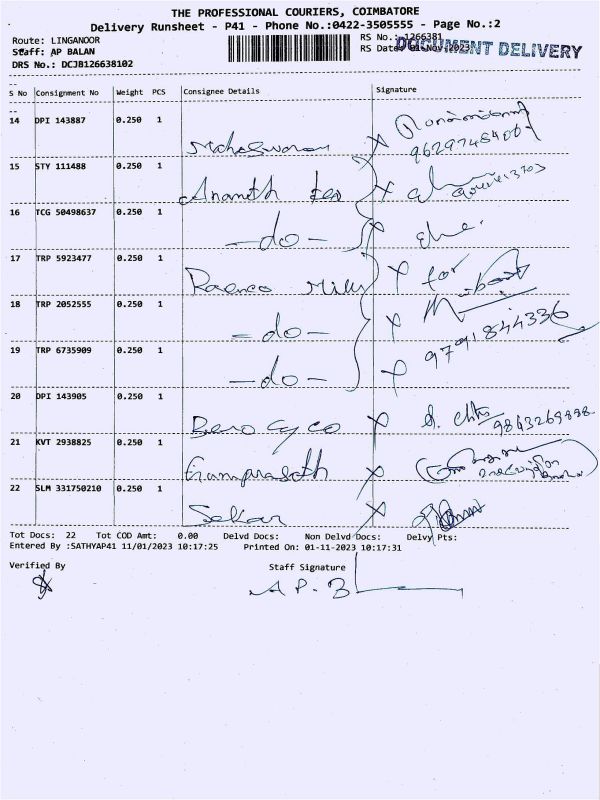 THE PROFESSIONAL COURIERS, COIMBATORE
Delivery Runsheet - P41 - Phone No.:0422-3505555 - Page No.:2
Route: LINGANOOR
RS No.: 1266381
Staff: AP BALAN
RS Date: 01-Nov-2023
DOCUMENT DELIVERY
DRS No.: DCJB126638102
S No Consignment No Weight PCS Consignee Details Signature
14 DPI 143887 0.250 1
Maheswaran
9629748406
15 STY 111488 0.250 1
Ananth
16 TCG 50498637 0.250 1
-do-
17 TRP 5923477 0.250 1
Mills for
18 TRP 2052555 0.250 1
-do-
9791844336
19 TRP 6735909 0.250 1
-do-
20 DPI 143905 0.250 1
Bero Cyco
9843269898
21 KVT 2938825 0.250 1
Ramprasath
22 SLM 331750210 0.250 1
Sekar
Tot Docs: 22 Tot COD Amt: 0.00 Delvd Docs: Non Delvd Docs: Delvy Pts:
Entered By :SATHYAP41 11/01/2023 10:17:25 Printed On: 01-11-2023 10:17:31
Verified By Staff Signature
A P. B